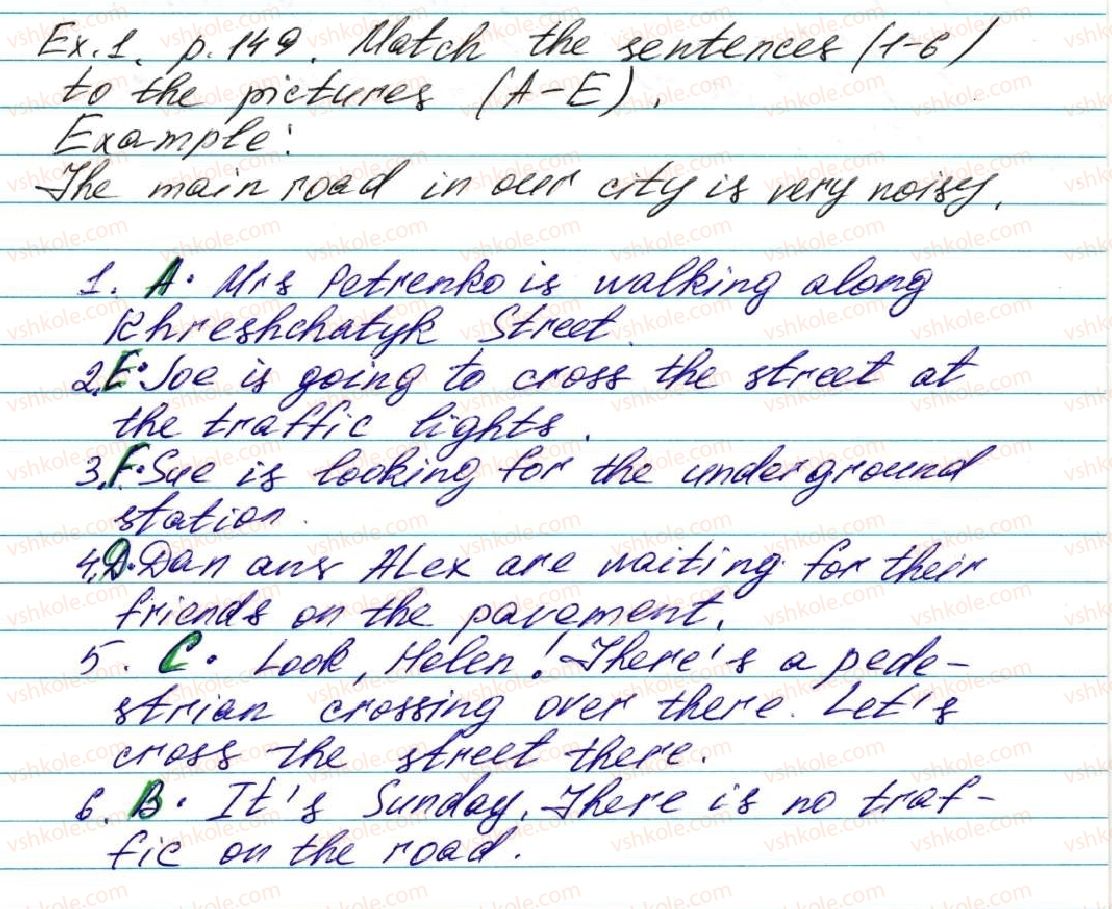 Ex. 1. p. 149. Match the sentences (1-6)
to the pictures (A-E).
Example:
The main road in our city is very noisy.
1. A. Mrs Petrenko is walking along
Khreshchatyk Street.
2. E. Joe is going to cross the street at
the traffic lights.
3. F. Sue is looking for the underground
station.
4. D. Dan ans Alex are waiting for their
friends on the pavement.
5. C. Look, Helen! There's a pede-
strian crossing over there. Let's
cross the street there.
6. B. It's Sunday. There is no traf-
fic on the road.
vshkole.com